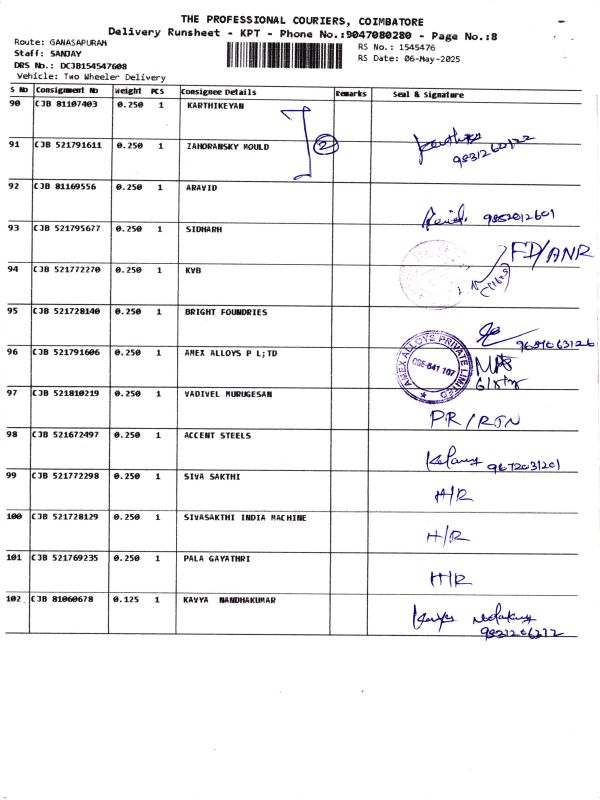 THE PROFESSIONAL COURIERS, COIMBATORE
Delivery Runsheet - KPT - Phone No.:9047080280 - Page No.:8
Route: GANASAPURAM
Staff: SANJAY
DRS No.: DCJB154547608
Vehicle: Two Wheeler Delivery
RS No.: 1545476
RS Date: 06-May-2025
S No Consignment No Weight PCS Consignee Details Remarks Seal & Signature
90 CJB 81107403 0.250 1 KARTHIKEYAN
2
91 CJB 521791611 0.250 1 ZAHORANSKY MOULD
92 CJB 81169556 0.250 1 ARAVID
9852012601
93 CJB 521795677 0.250 1 SIDHARH
FD/ANR
94 CJB 521772270 0.250 1 KVB
95 CJB 521728140 0.250 1 BRIGHT FOUNDRIES
96 CJB 521791606 0.250 1 AMEX ALLOYS P L;TD
AMEX ALLOYS PRIVATE LIMITED
CBE-641 107
97 CJB 521810219 0.250 1 VADIVEL MURUGESAN
PR/RTN
98 CJB 521672497 0.250 1 ACCENT STEELS
9672031201
99 CJB 521772298 0.250 1 SIVA SAKTHI
H/R
100 CJB 521728129 0.250 1 SIVASAKTHI INDIA MACHINE
H/R
101 CJB 521769235 0.250 1 PALA GAYATHRI
H/R
102 CJB 81060678 0.125 1 KAVYA NANDHAKUMAR